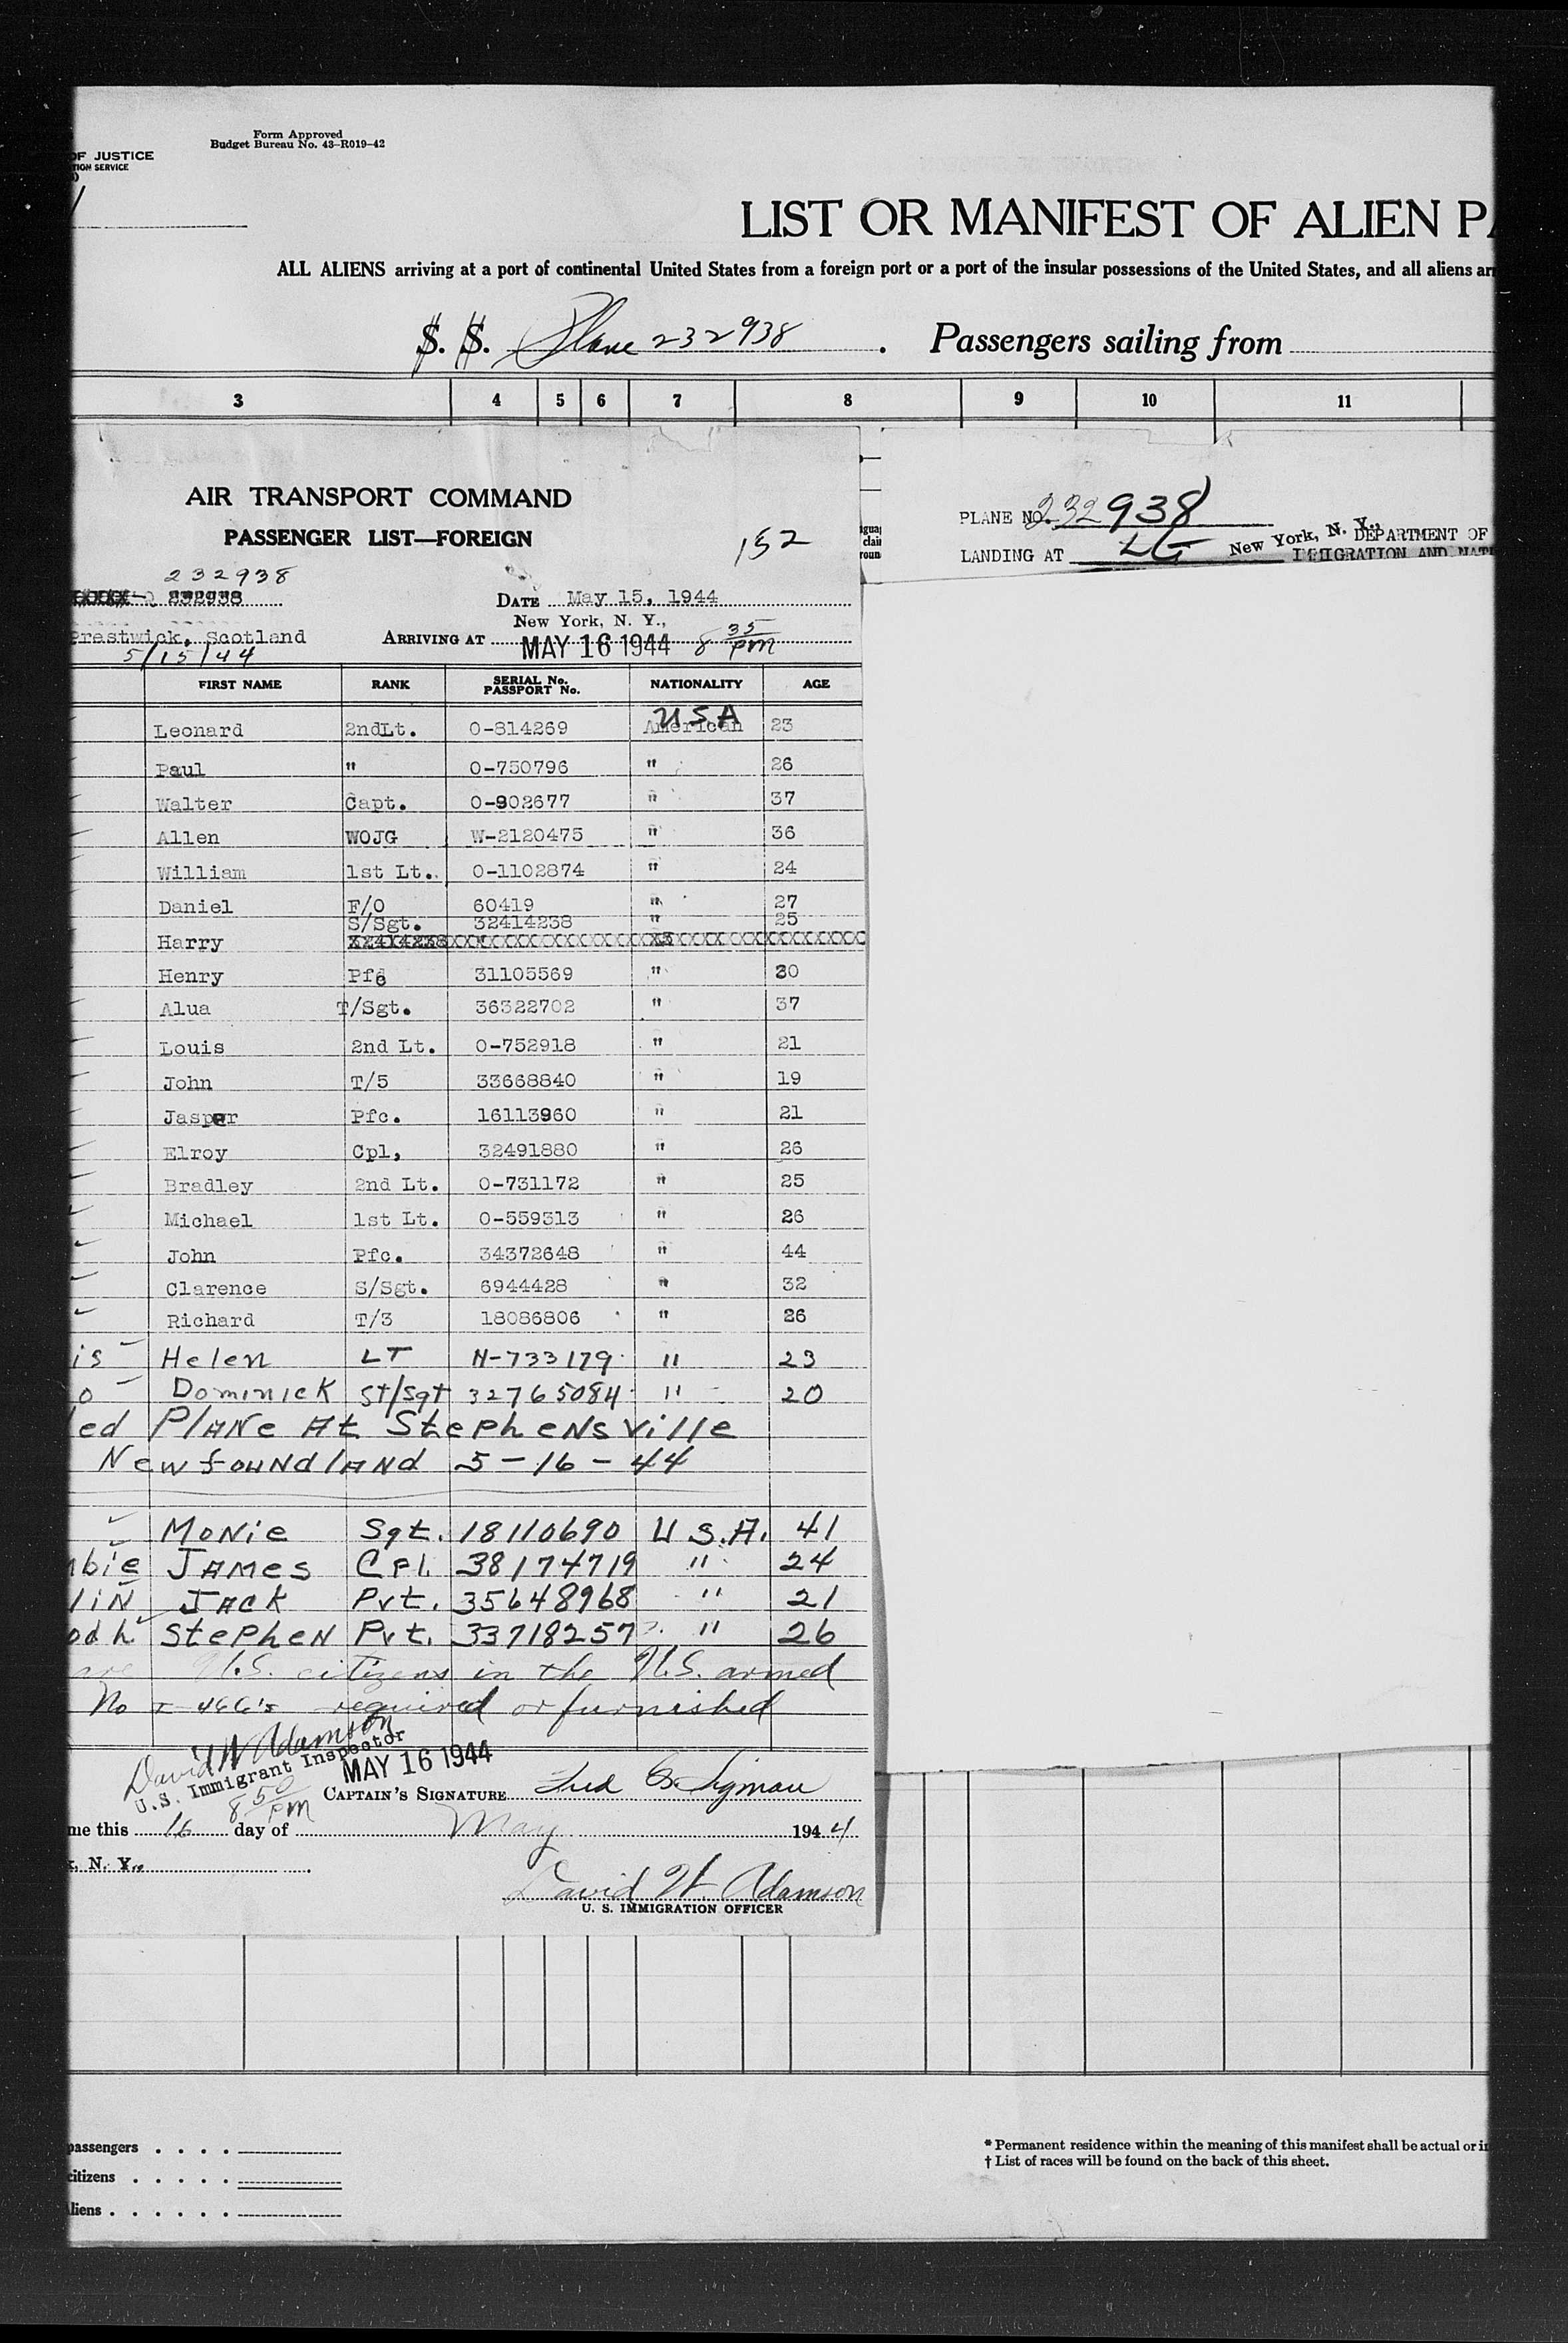 OF JUSTICE
TION SERVICE
Form Approved
Budget Bureau No. 43-R019-42
LIST OR MANIFEST OF ALIEN PA
ALL ALIENS arriving at a port of continental United States from a foreign port or a port of the insular possessions of the United States, and all aliens arr
S. S. Plane 232938. Passengers sailing from
3 4 5 6 7 8 9 10 11
AIR TRANSPORT COMMAND
PASSENGER LIST—FOREIGN
152
232938
232938
DATE May 15, 1944
Prestwick, Scotland
5/15/44
New York, N. Y.,
ARRIVING AT MAY 16 1944 8 35 PM
PLANE NO. 232938
LANDING AT LG New York, N. Y., DEPARTMENT OF
IMMIGRATION AND NAT
FIRST NAME RANK SERIAL No. PASSPORT No. NATIONALITY AGE
Leonard 2ndLt. O-814269 American USA 23
Paul " O-750796 " 26
Walter Capt. O-902677 " 37
Allen WOJG W-2120475 " 36
William 1st Lt. O-1102874 " 24
Daniel F/O 60419 " 27
S/Sgt. 32414238 " 25
Harry
Henry Pfc 31105569 " 30
Alua T/Sgt. 36322702 " 37
Louis 2nd Lt. O-752918 " 21
John T/5 33668840 " 19
Jasper Pfc. 16113960 " 21
Elroy Cpl, 32491880 " 26
Bradley 2nd Lt. O-731172 " 25
Michael 1st Lt. O-559313 " 26
John Pfc. 34372648 " 44
Clarence S/Sgt. 6944428 " 32
Richard T/3 18086806 " 26
is Helen LT N-733179 " 23
o Dominick St/Sgt 32765084 " 20
led Plane At Stephensville
Newfoundland 5-16-44
Monie Sgt. 18110690 U.S.A. 41
mbie James Cpl. 38174719 " 24
lin Jack Pvt. 35648968 " 21
odh Stephen Pvt. 33718257 " 26
are U.S. citizens in the U.S. armed
No I-466's required or furnished
David W Adamson
U.S. Immigrant Inspector
MAY 16 1944
8 50 PM
CAPTAIN'S SIGNATURE Fred
me this 16 day of May 1944
k, N. Y.,
David W. Adamson
U. S. IMMIGRATION OFFICER
passengers
citizens
Aliens
* Permanent residence within the meaning of this manifest shall be actual or in
† List of races will be found on the back of this sheet.